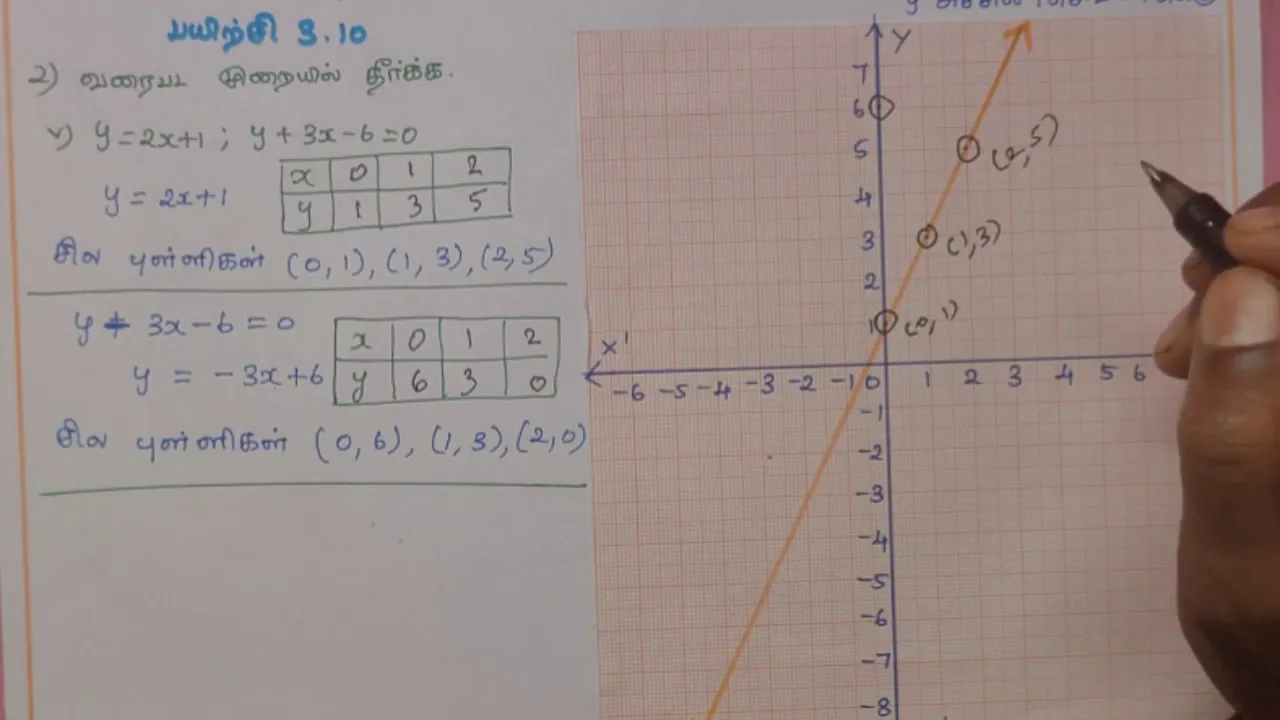 பயிற்சி 3.10
2) வரைபட முறையில் தீர்க்க.
v) y = 2x+1 ; y + 3x - 6 = 0
y = 2x+1
x 0 1 2
y 1 3 5
சில புள்ளிகள் (0, 1), (1, 3), (2, 5)
y + 3x - 6 = 0
y = -3x+6
x 0 1 2
y 6 3 0
சில புள்ளிகள் (0, 6), (1, 3), (2, 0)
Y
7
6
5
(2, 5)
4
3
(1, 3)
2
1
(0, 1)
X'
-6 -5 -4 -3 -2 -1 0 1 2 3 4 5 6
-1
-2
-3
-4
-5
-6
-7
-8